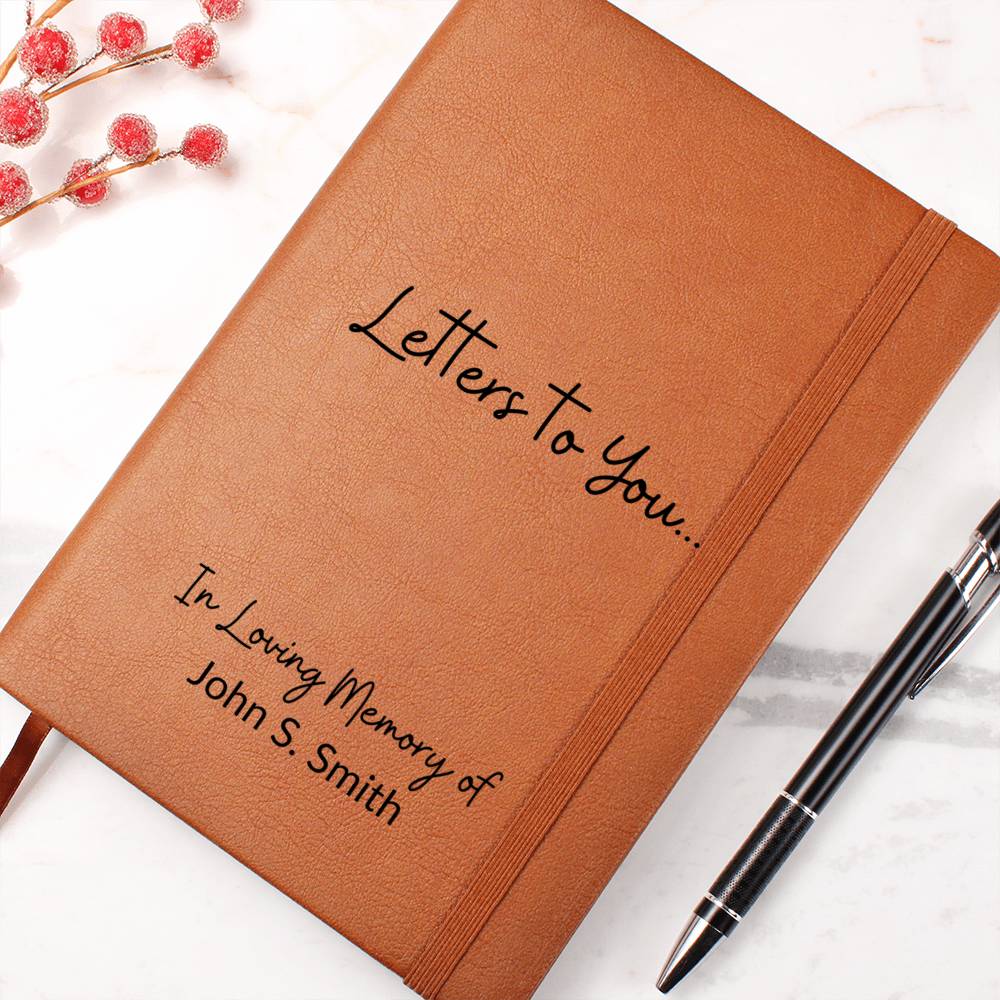 Letters To You...
In Loving Memory of
John S. Smith